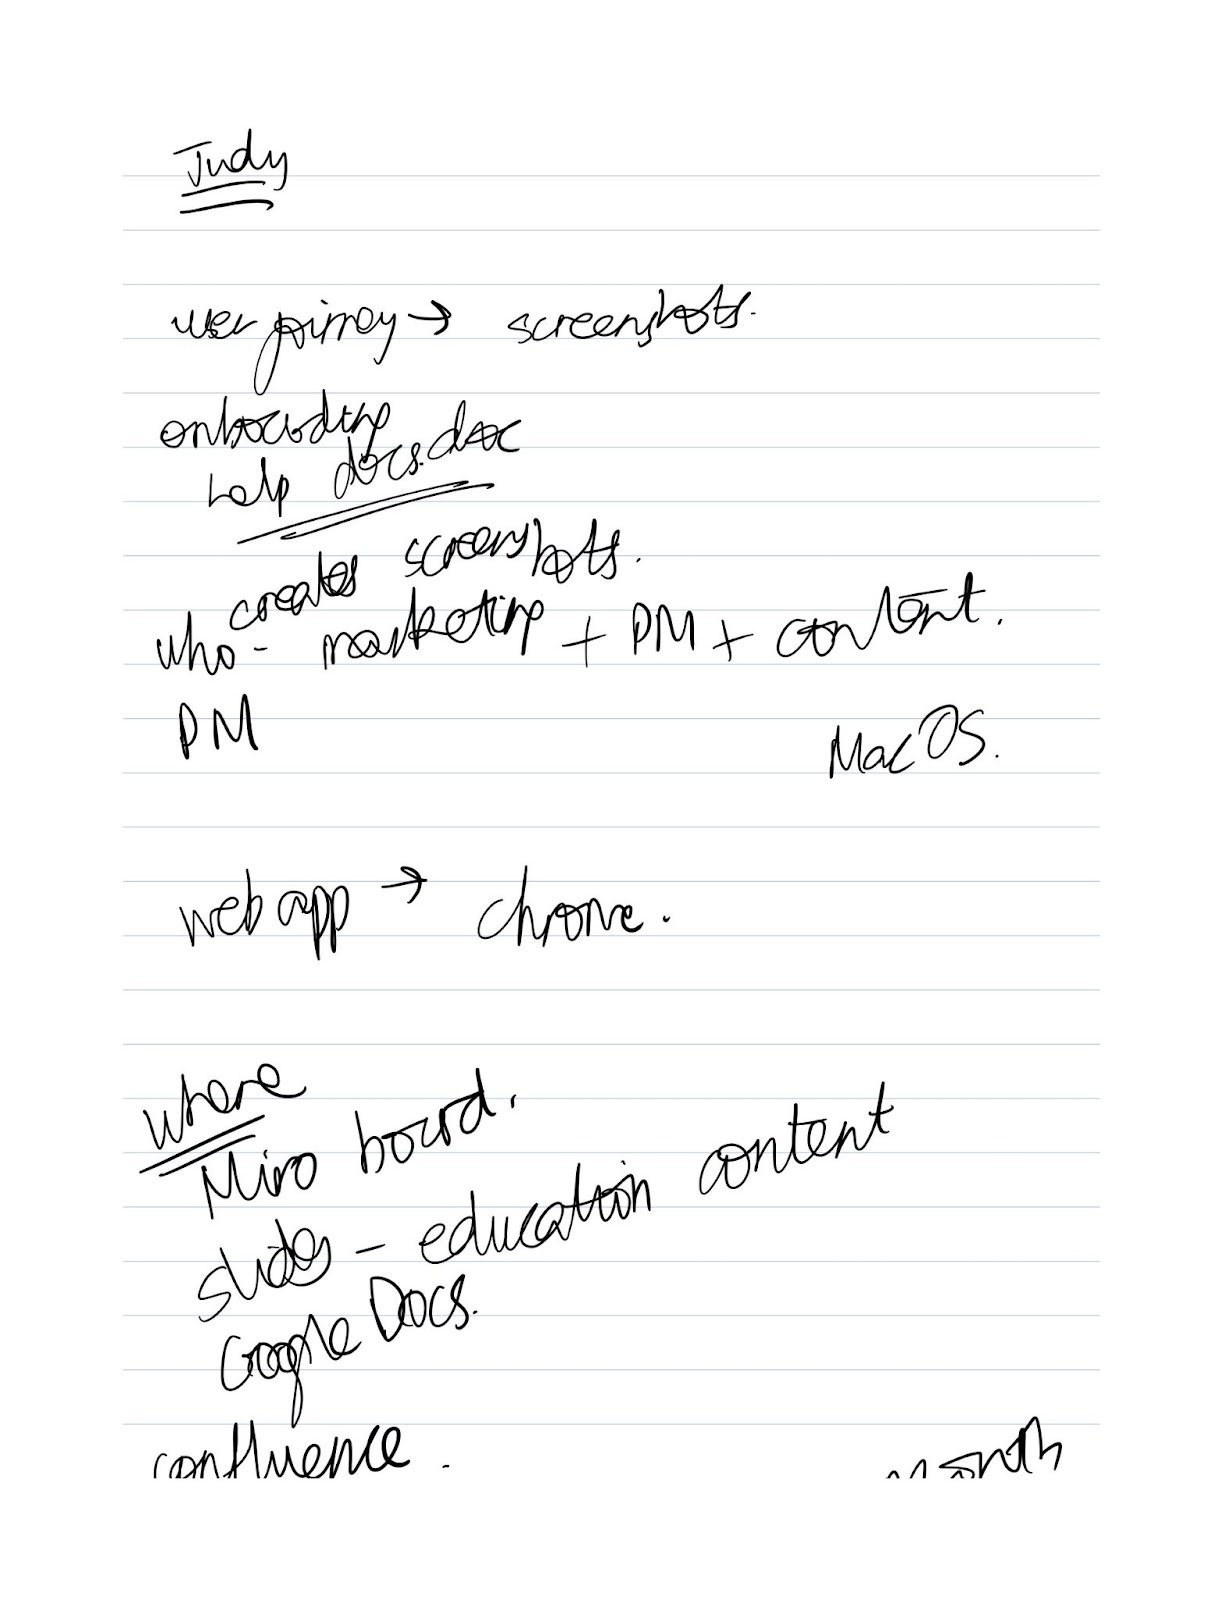 Judy
user joirney → screenshots.
onboarding
help docs.doc
creates screenshots.
who - marketing + PM + content.
PM
MacOS.
web app → chrome.
where
Miro board.
slides - education content
Google Docs.
confluence.
month